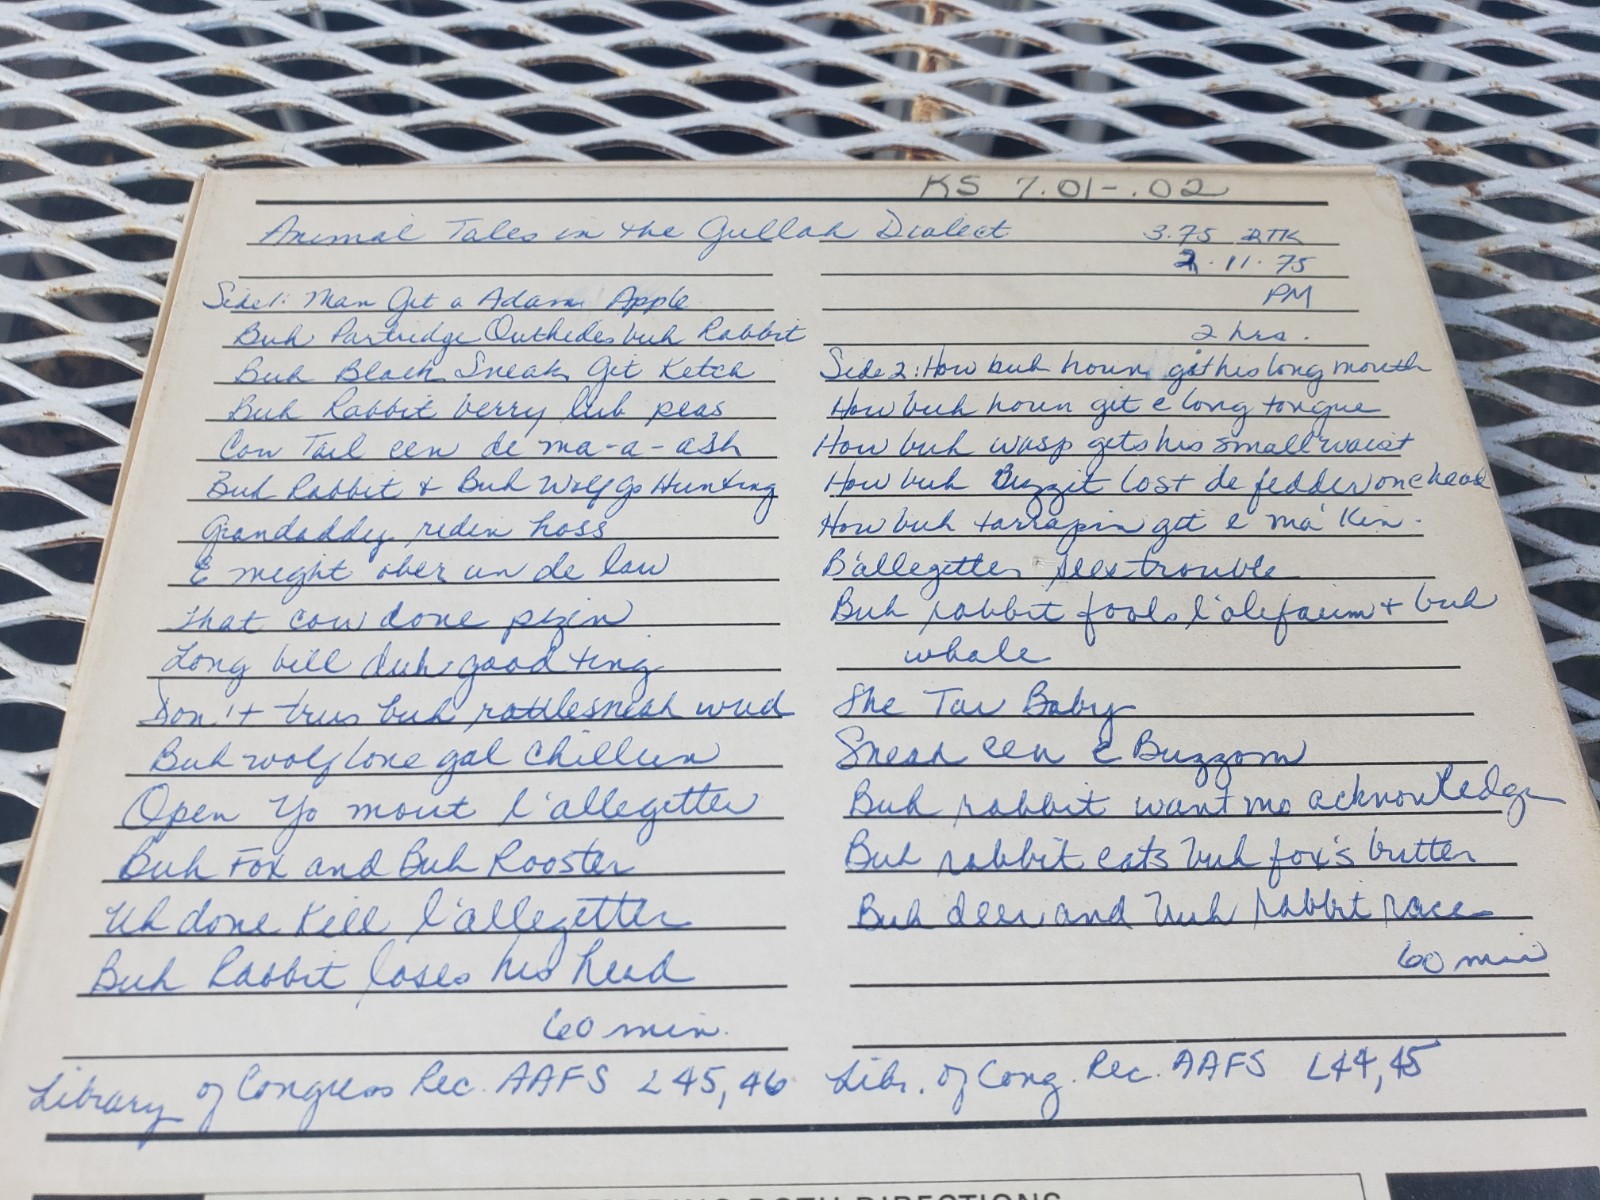 KS 7.01-.02
Animal Tales in the Gullah Dialect
3.75 2TK
2.11.75
PM
2 hrs.
Side 1: Man Git a Adam Apple
Buh Partridge Outhides buh Rabbit
Buh Black Sneak Git Ketch
Buh Rabbit berry lub peas
Cow Tail een de ma-a-ash
Buh Rabbit & Buh Wolf Go Hunting
Grandaddy riden hoss
E might ober un de law
That cow done pizin
Long bill duh good ting
Don't trus buh rattlesneak wud
Buh wolf lone gal chillun
Open Yo mout l'allegetter
Buh Fox and Buh Rooster
Uh done kill l'allegetter
Buh Rabbit loses his head
60 min.
Library of Congress Rec. AAFS L45, 46
Side 2: How buh houn got his long mouth
How buh houn git e long tongue
How buh wasp gets his small waist
How buh Buzzit lost de fedder on e head
How buh tarrapin git e ma' kin.
B'allegetter sees trouble
Buh rabbit fools l'olefaum + buh
whale
The Tar Baby
Sneak een e Buzzom
Buh rabbit want mo acknowledge
Buh rabbit eats buh fox's butter
Buh deer and buh rabbit race
60 min
Libr. of Cong. Rec. AAFS L44, 45
BOTH DIRECTIONS